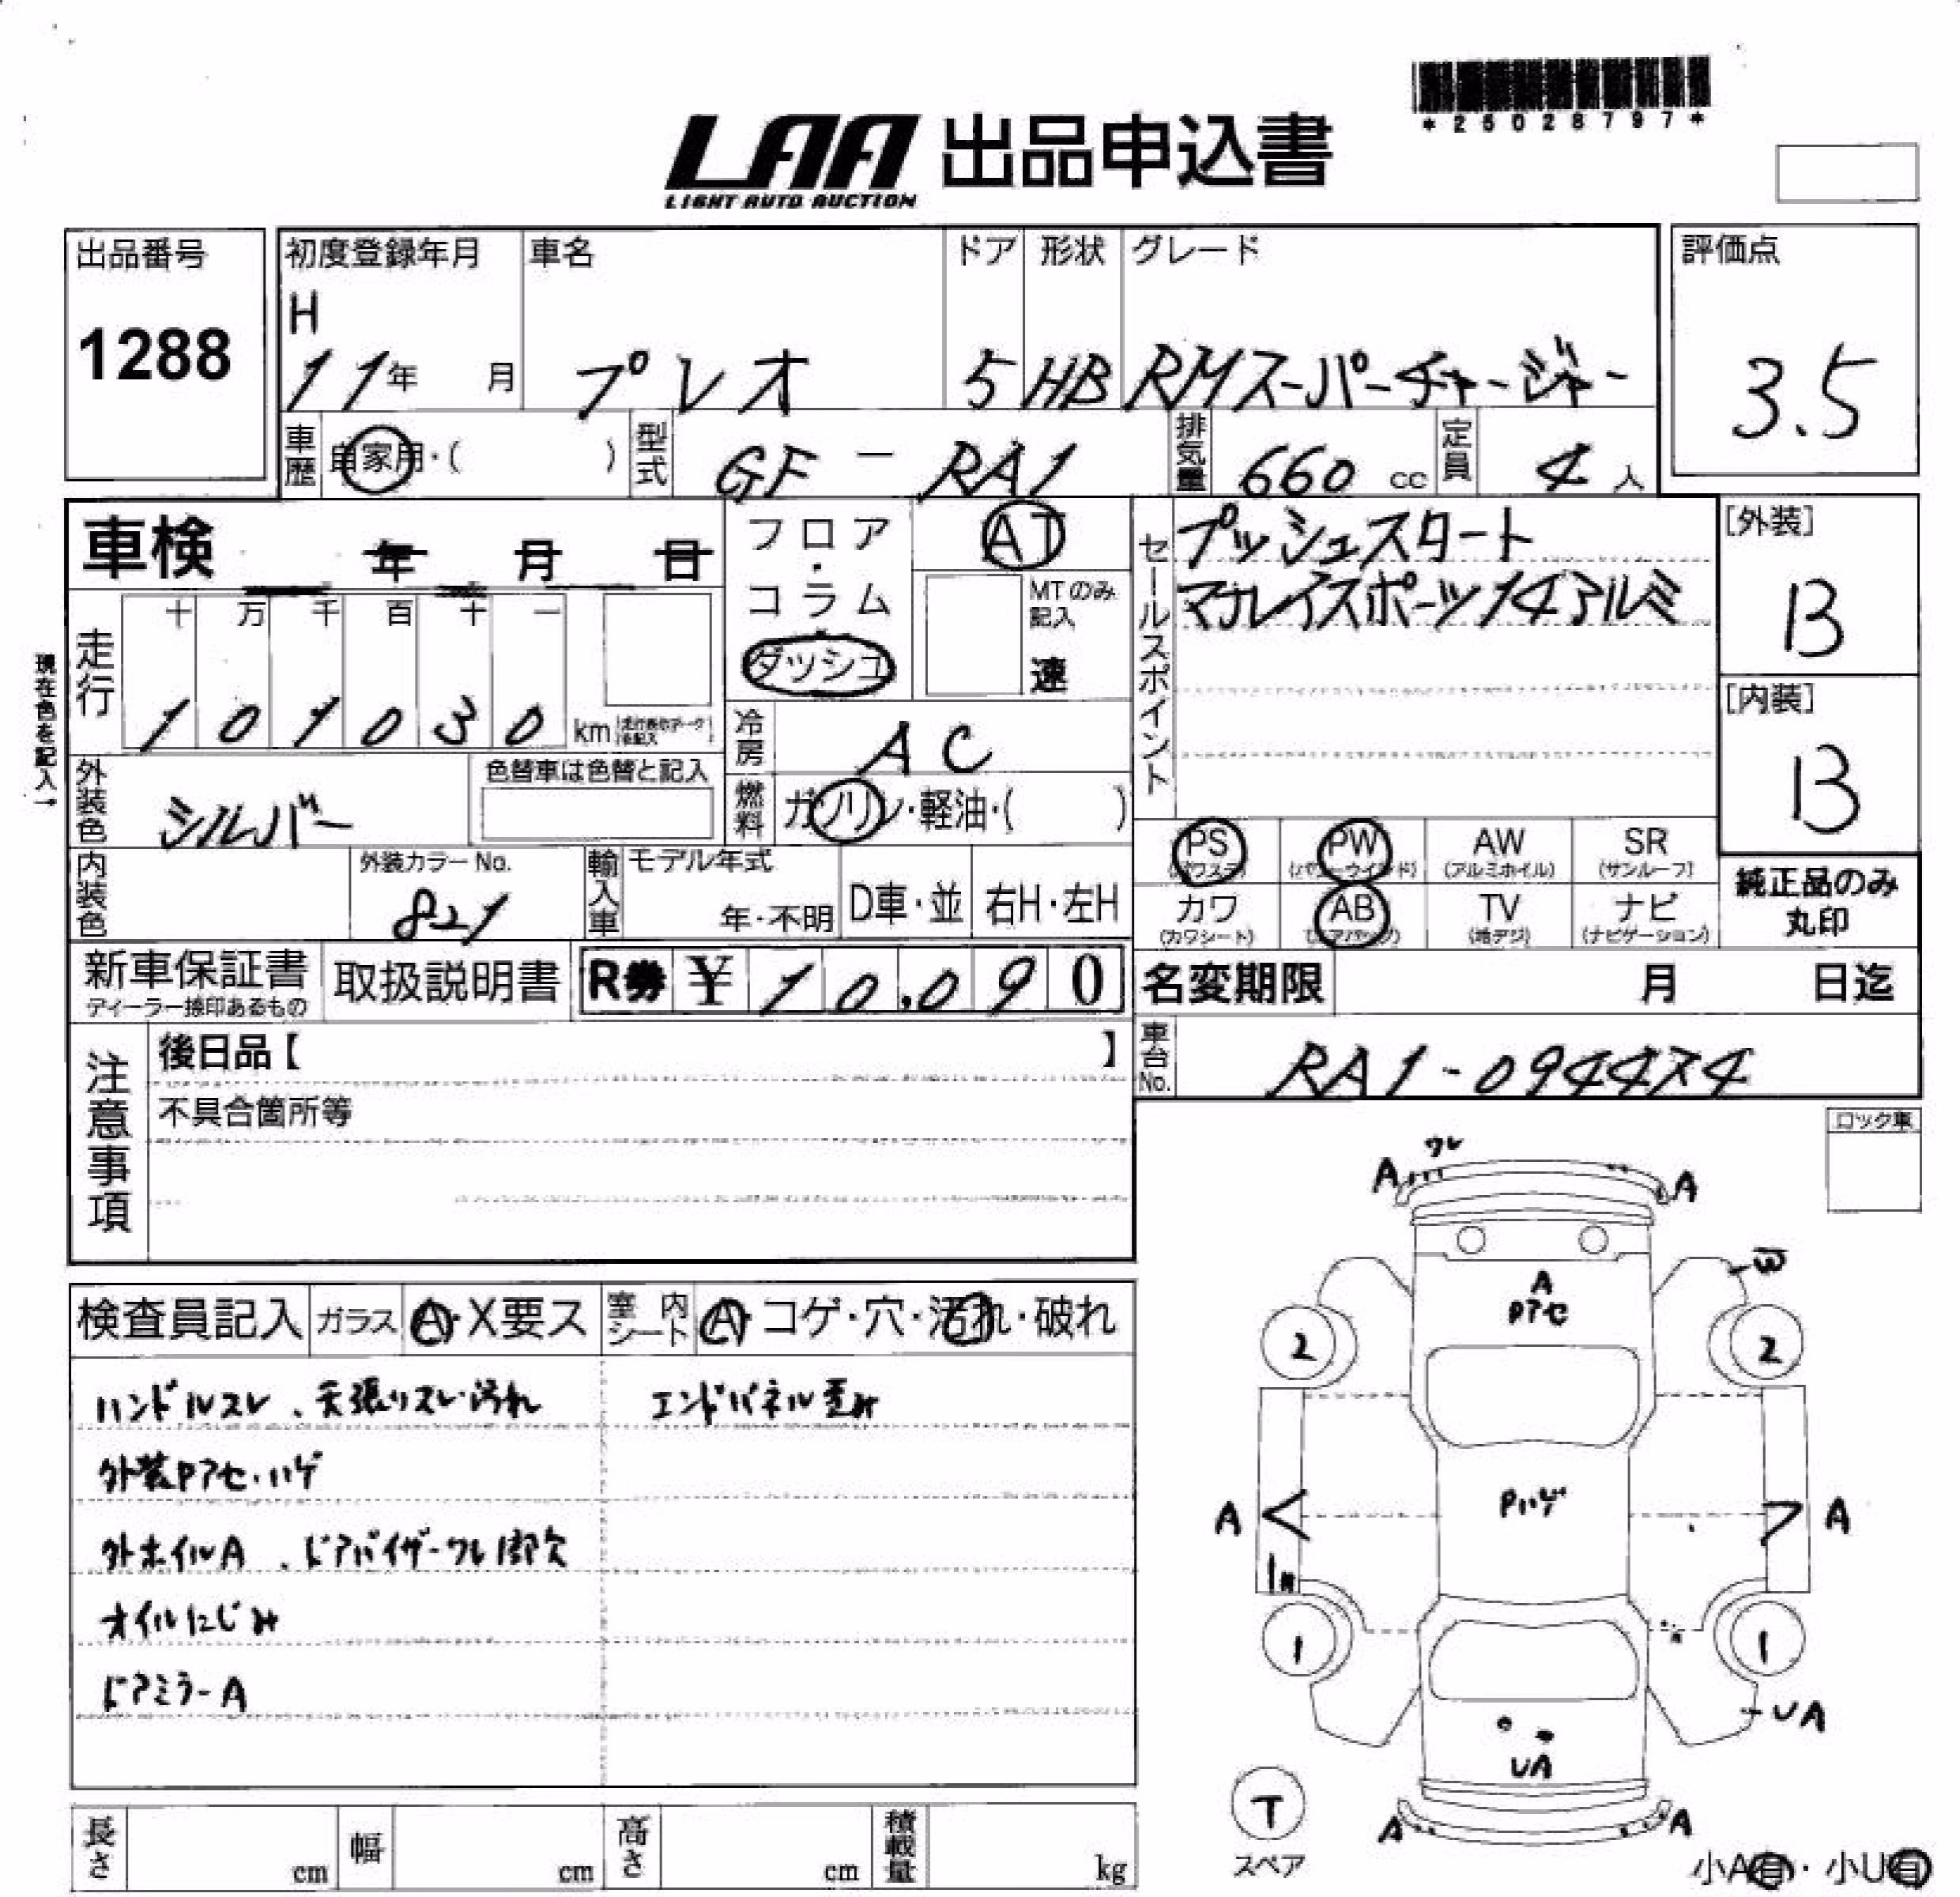 *25028797*
LAA 出品申込書
LIGHT AUTO AUCTION
出品番号
1288
初度登録年月
H
11年 月
車名
プレオ
ドア
5
形状
HB
グレード
RMスーパーチャージャー
評価点
3.5
車歴 自家用・( )
型式 GF - RA1
排気量 660 cc
定員 4 人
車検 年 月 日
フロア・コラム・ダッシュ
AT
MTのみ記入
速
セールスポイント
プッシュスタート
マナレイスポーツ14アルミ
[外装]
B
[内装]
B
現在色を記入→
走行
十 万 千 百 十 一
1 0 1 0 3 0 km
冷房 AC
燃料 ガソリン・軽油・( )
外装色 シルバー
色替車は色替と記入
内装色
外装カラーNo.
821
輸入車
モデル年式
年・不明
D車・並
右H・左H
PS (パワステ)
PW (パワーウインド)
AW (アルミホイル)
SR (サンルーフ)
カワ (カワシート)
AB (エアバッグ)
TV (地デジ)
ナビ (ナビゲーション)
純正品のみ
丸印
新車保証書
ディーラー捺印あるもの
取扱説明書
R券 ¥ 10,090
名変期限 月 日迄
車台No. RA1-094474
注意事項
後日品【 】
不具合箇所等
ロック車
検査員記入
ガラス A・X要ス
室内シート A・コゲ・穴・汚れ・破れ
ハンドルスレ、天張りスレ・汚れ
エンドパネル歪み
外装Pアセ・ハゲ
外ホイルA、ドアバイザーワレ1部欠
オイルにじみ
ドアミラーA
ワレ
A
A
A
Pアセ
2
2
Pハゲ
A
A
1
1
UA
UA
A
A
T
スペア
小A有・小U有
長さ cm
幅 cm
高さ cm
積載量 kg